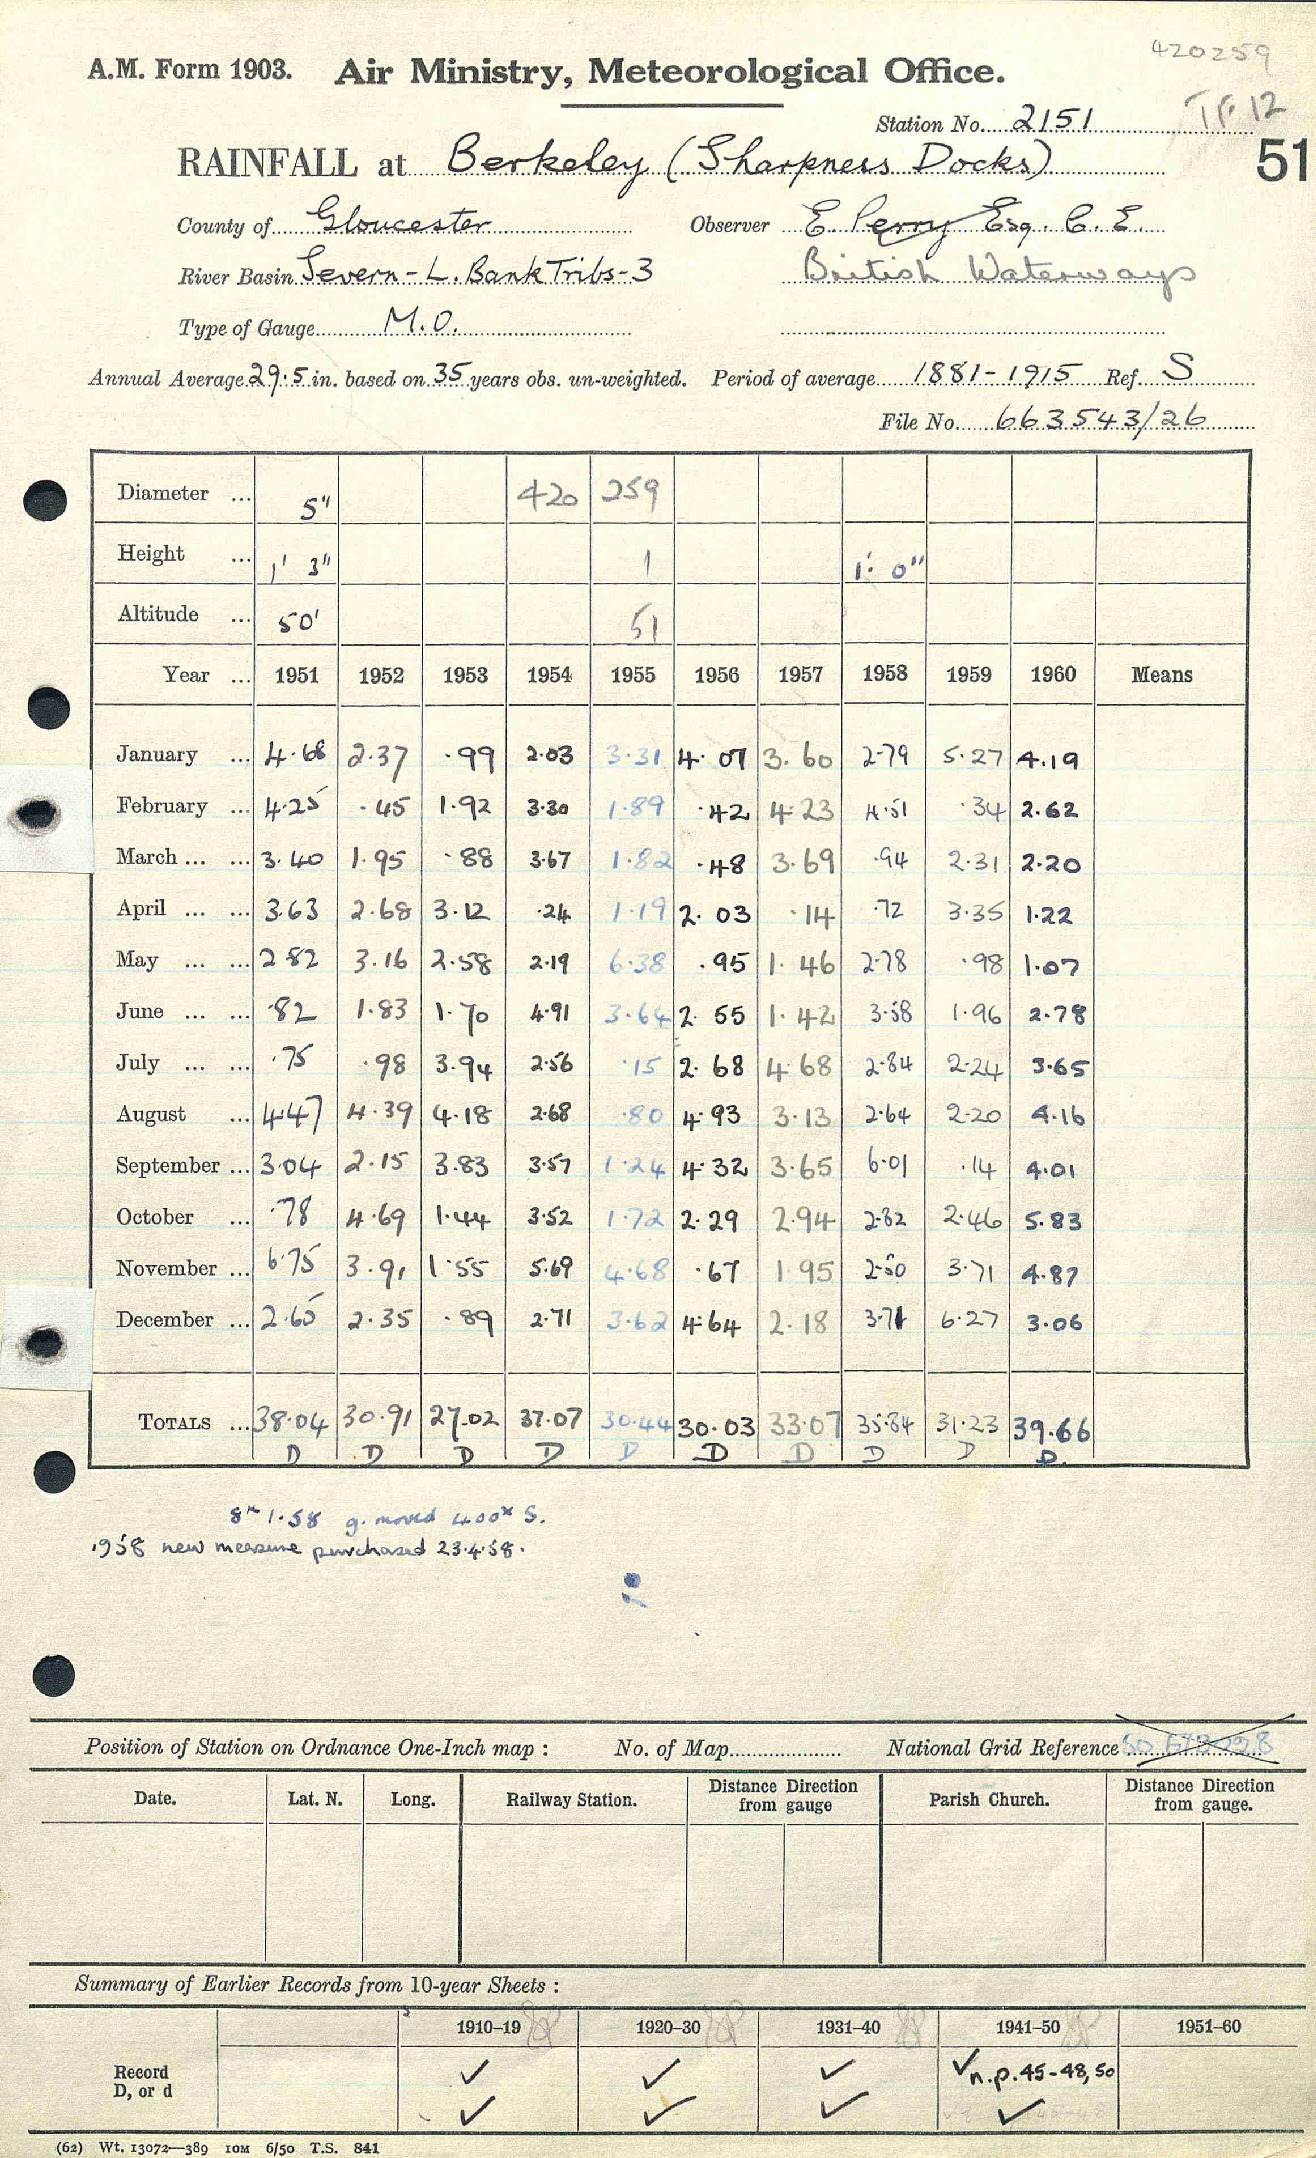 420259
A.M. Form 1903. Air Ministry, Meteorological Office.
TF 12
Station No. 2151
51
RAINFALL at Berkeley (Sharpness Docks)
County of Gloucester Observer E. Perry Esq. C. E.
River Basin Severn - L. Bank Tribs - 3 British Waterways
Type of Gauge M.O.
Annual Average 29.5 in. based on 35 years obs. un-weighted. Period of average 1881-1915 Ref. S
File No. 663543/26
Diameter ... 5" 420 259
Height ... 1' 3" 1 1' 0"
Altitude ... 50' 51
Year ... 1951 1952 1953 1954 1955 1956 1957 1958 1959 1960 Means
January ... 4.68 2.37 .99 2.03 3.31 4.07 3.60 2.79 5.27 4.19
February ... 4.25 .45 1.92 3.30 1.89 .42 4.23 4.51 .34 2.62
March ... ... 3.40 1.95 .88 3.67 1.82 .48 3.69 .94 2.31 2.20
April ... ... 3.63 2.68 3.12 .24 1.19 2.03 .14 .72 3.35 1.22
May ... ... 2.82 3.16 2.58 2.19 6.38 .95 1.46 2.78 .98 1.07
June ... ... .82 1.83 1.70 4.91 3.64 2.55 1.42 3.58 1.96 2.78
July ... ... .75 .98 3.94 2.56 .15 2.68 4.68 2.84 2.24 3.65
August ... 4.47 4.39 4.18 2.68 .80 4.93 3.13 2.64 2.20 4.16
September ... 3.04 2.15 3.83 3.57 1.24 4.32 3.65 6.01 .14 4.01
October ... .78 4.69 1.44 3.52 1.72 2.29 2.94 2.82 2.46 5.83
November ... 6.75 3.91 1.55 5.69 4.68 .67 1.95 2.50 3.71 4.87
December ... 2.65 2.35 .89 2.71 3.62 4.64 2.18 3.71 6.27 3.06
TOTALS ... 38.04 30.91 27.02 37.07 30.44 30.03 33.07 35.84 31.23 39.66
D D D D D D D D D D.
8th 1.58 g. moved 400x S.
1958 new measure purchased 23.4.58.
Position of Station on Ordnance One-Inch map : No. of Map National Grid Reference
Date. Lat. N. Long. Railway Station. Distance from gauge Direction Parish Church. Distance from gauge. Direction
Summary of Earlier Records from 10-year Sheets :
1910-19 1920-30 1931-40 1941-50 1951-60
Record ✓ ✓ ✓ ✓ n.p. 45-48, 50
D, or d ✓ ✓ ✓ ✓
(62) Wt. 13072—389 10M 6/50 T.S. 841